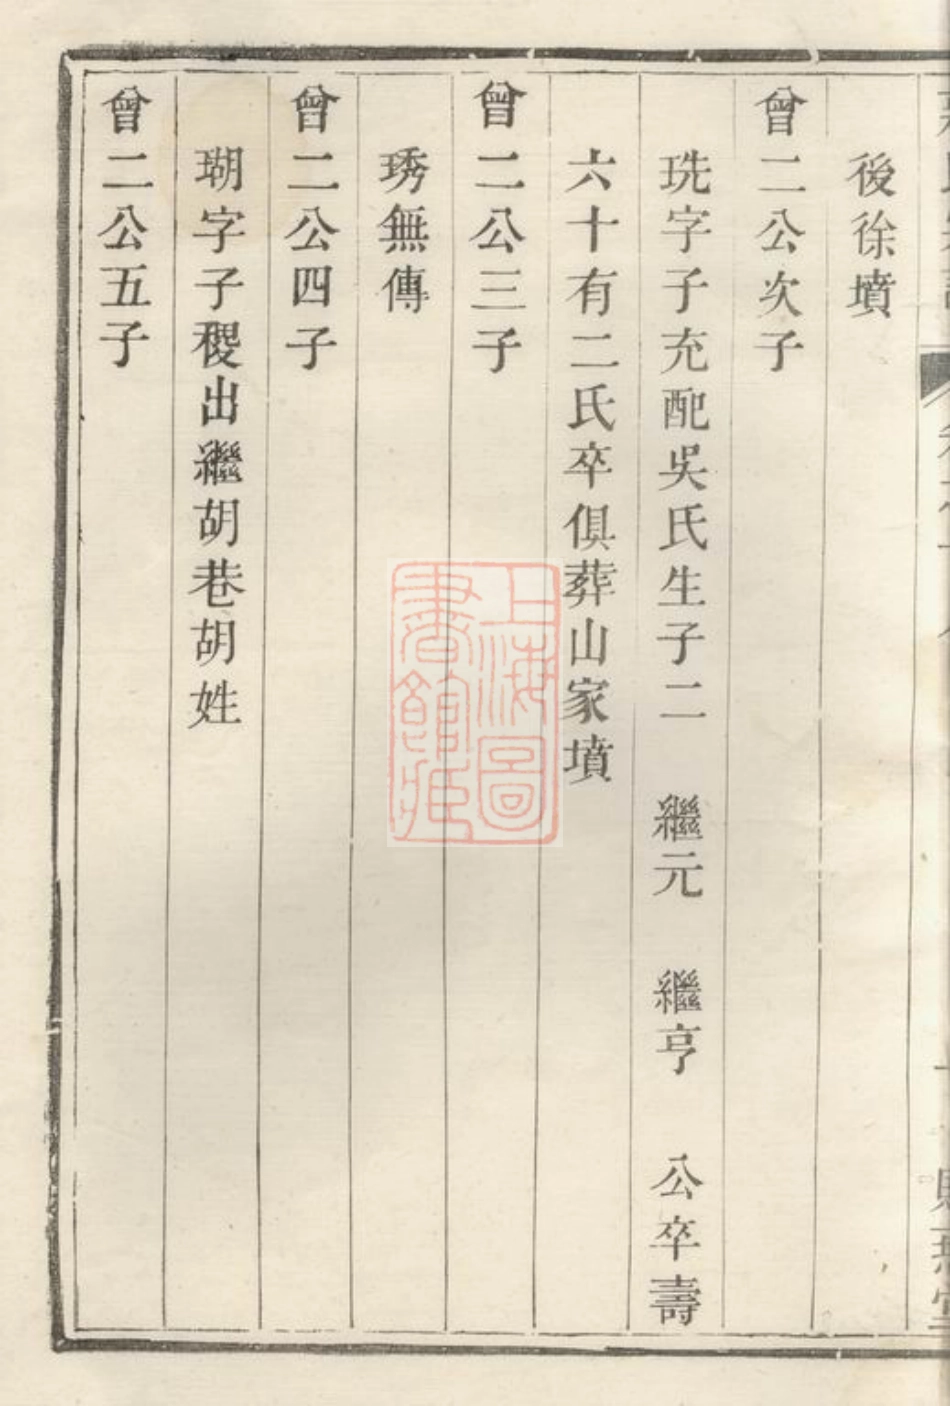 後徐墳
曾二公次子
珗字子充配吳氏生子二 繼元 繼亨 公卒壽
六十有二氏卒俱葬山家墳
曾二公三子
琇無傳
曾二公四子
瑚字子稷出繼胡巷胡姓
曾二公五子
上海圖
書館藏